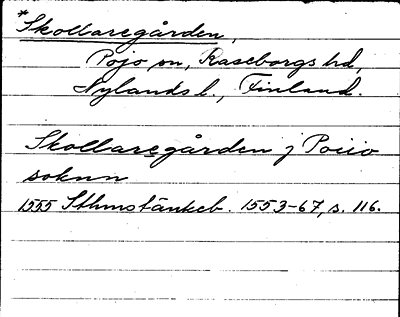 *Skollaregården,
Pojo sn, Raseborgs hd,
Nylands l., Finland.
Skollaregården j Poiio
soknn
1555 Sthmstänkeb. 1553-67, s. 116.